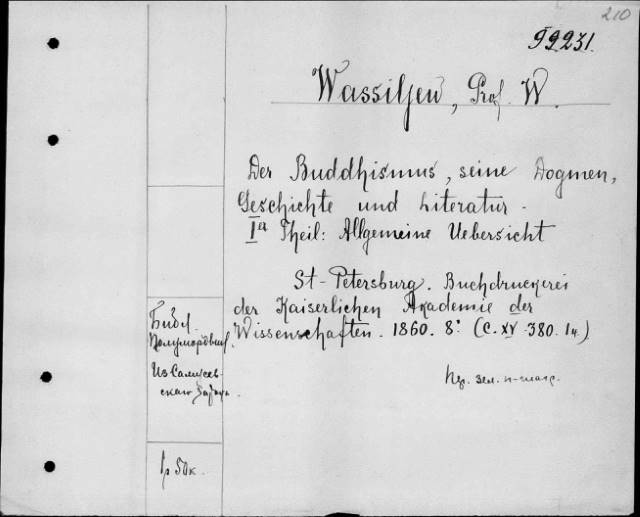 210
99231.
Wassiljew, Prof. W.
Der Buddhismus, seine Dogmen,
Geschichte und Literatur.
Iª Theil: Allgemeine Uebersicht
St-Petersburg. Buchdruckerei
der Kaiserlichen Akademie der
Wissenschaften. 1860. 8º. (С. XV. 380. 1 н.)
Библ.
Полумордвин.
1 р 50 к.